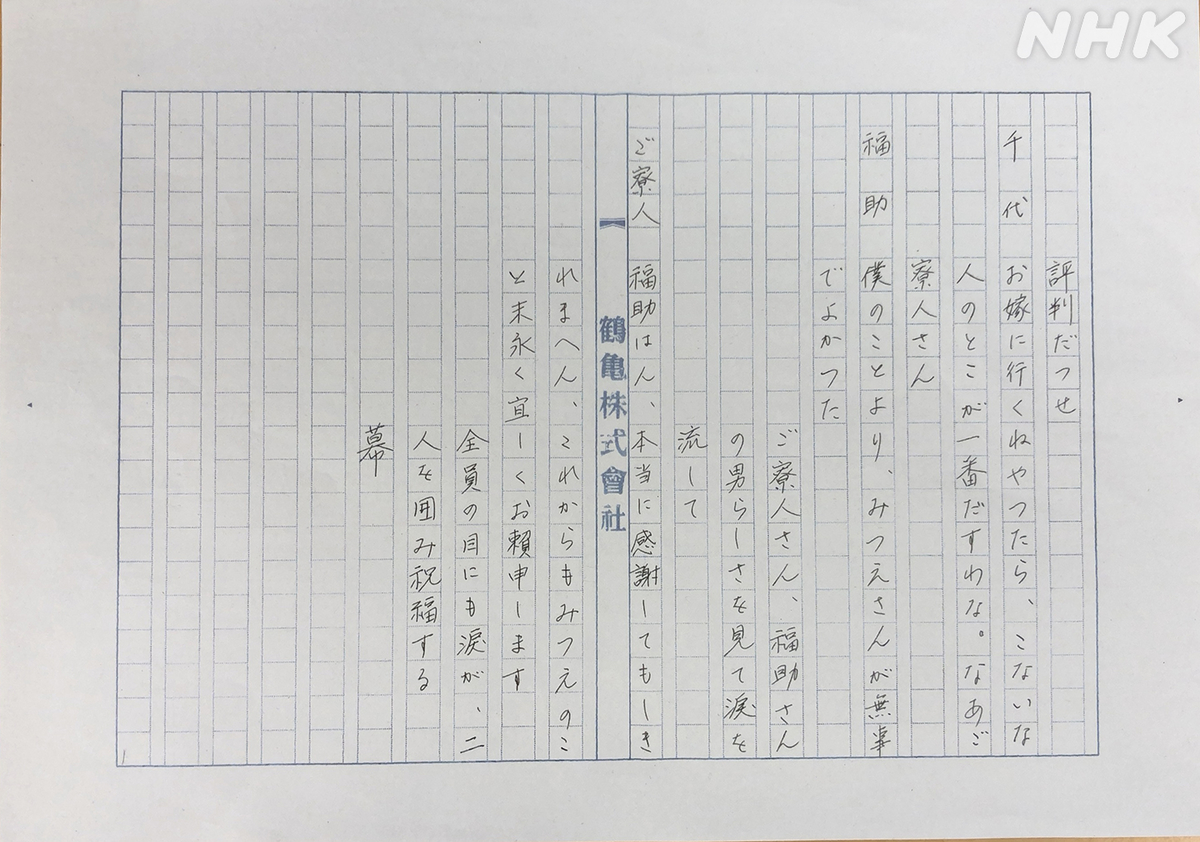 NHK
評判だつせ
千代 お嫁に行くねやつたら、こないな
人のとこが一番だすわな。なあご
寮人さん
福助 僕のことより、みつえさんが無事
でよかつた
ご寮人さん、福助さん
の男らしさを見て涙を
流して
ご寮人 福助はん、本当に感謝してもしき
鶴亀株式會社
れまへん、これからもみつえのこ
と末永く宜しくお頼申します
全員の目にも涙が、二
人を囲み祝福する
幕